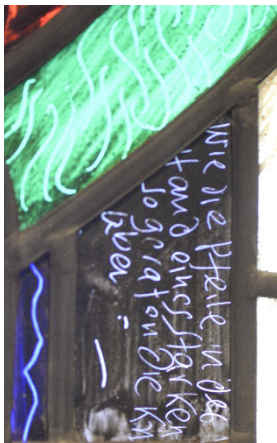 Wie die Pfeile in der
Hand eines Starken
so geraten die Kn
aben